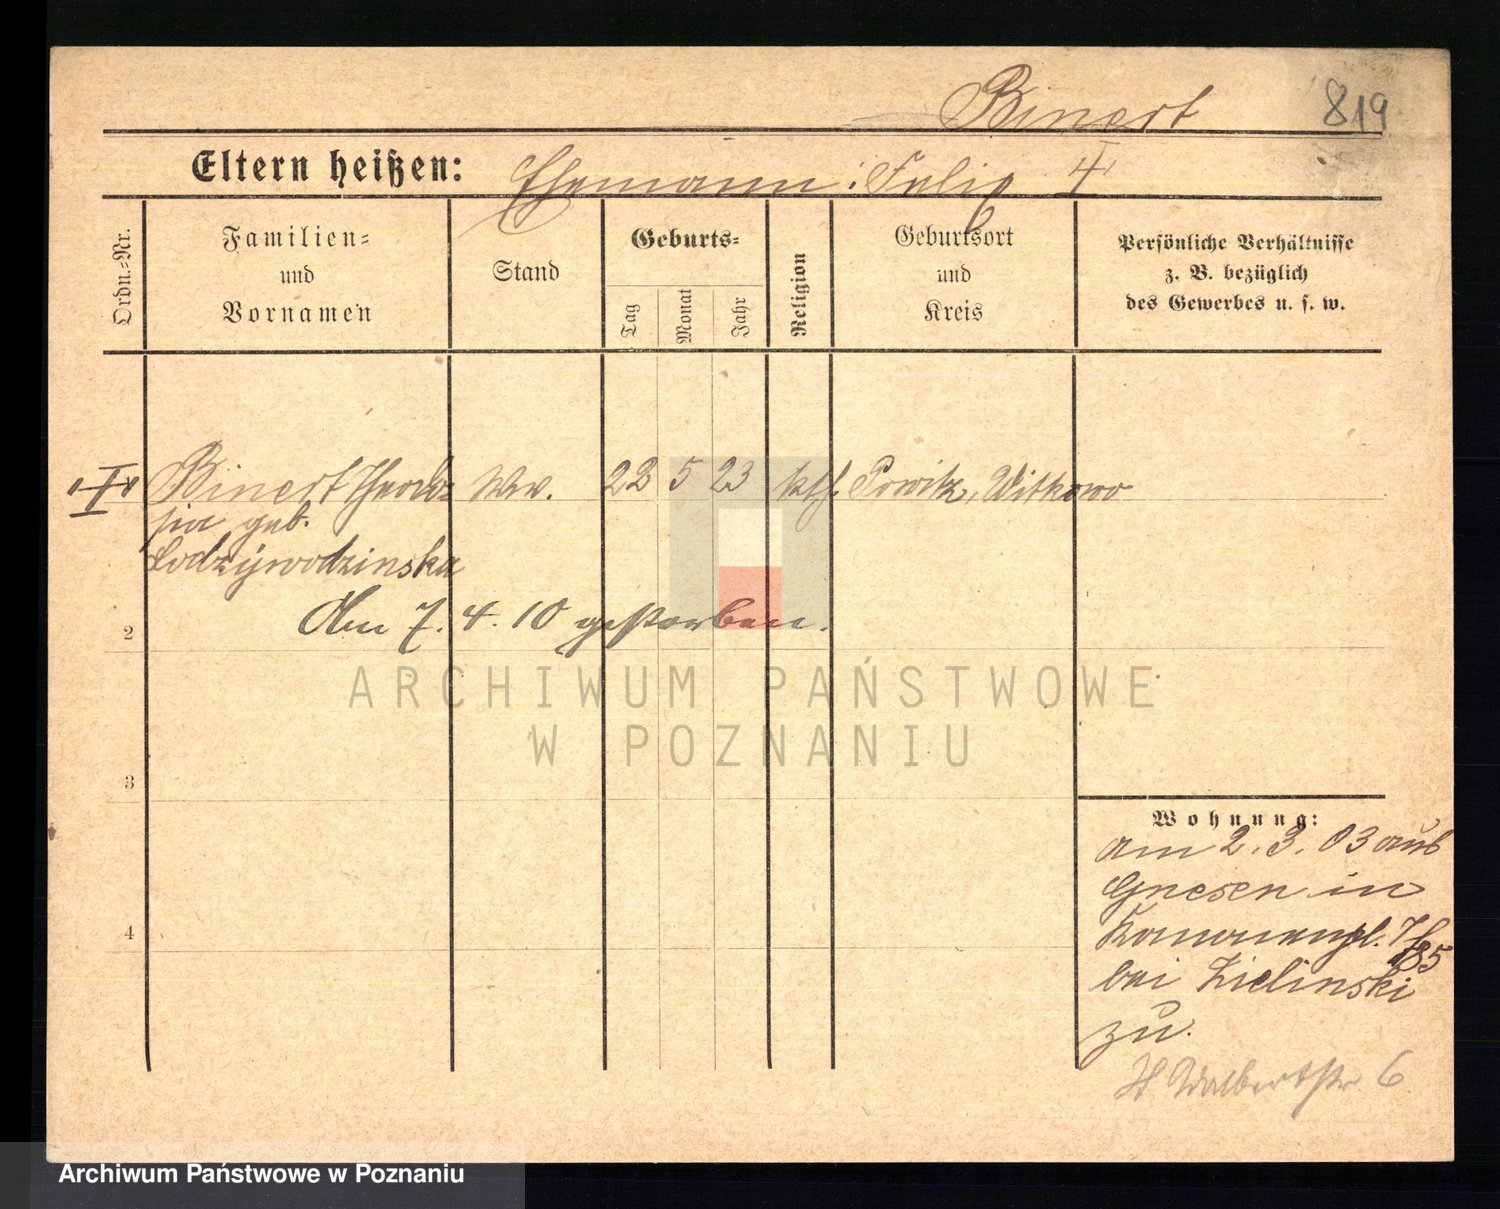 Binert 819
Eltern heißen: Ehemann: Felix
Ordn.-Nr.
Familien-
und
Vornamen
Stand
Geburts-
Tag
Monat
Jahr
Religion
Geburtsort
und
Kreis
Persönliche Verhältnisse
z. B. bezüglich
des Gewerbes u. s. w.
Binert Theodo- Ww. 22 5 23 kth. Powitz, Witkowo
sia geb.
Lodzywodzinska
Am 7. 4. 10 gestorben.
2
3
4
ARCHIWUM PAŃSTWOWE
W POZNANIU
Wohnung:
am 2. 3. 03 aus
Gnesen in
bei Zielinski
zu.
St. Adalbertstr. 6
Archiwum Państwowe w Poznaniu